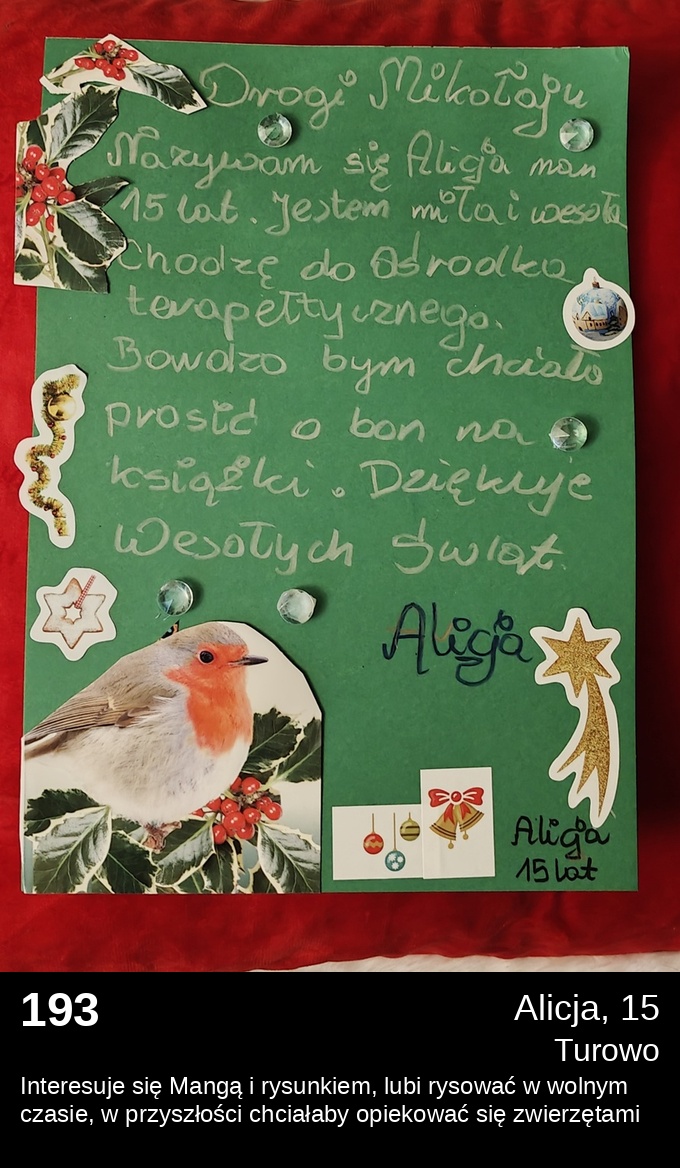 Drogi Mikołaju
Nazywam się Alicja mam
15 lat. Jestem miła i wesoła
Chodzę do Ośrodka
terapełtycznego.
Bowdzo bym chciała
prosić o bon na
książki. Dziękuje
Wesołych Świąt.
Alicja
Alicja
15 lat
193
Alicja, 15
Turowo
Interesuje się Mangą i rysunkiem, lubi rysować w wolnym
czasie, w przyszłości chciałaby opiekować się zwierzętami